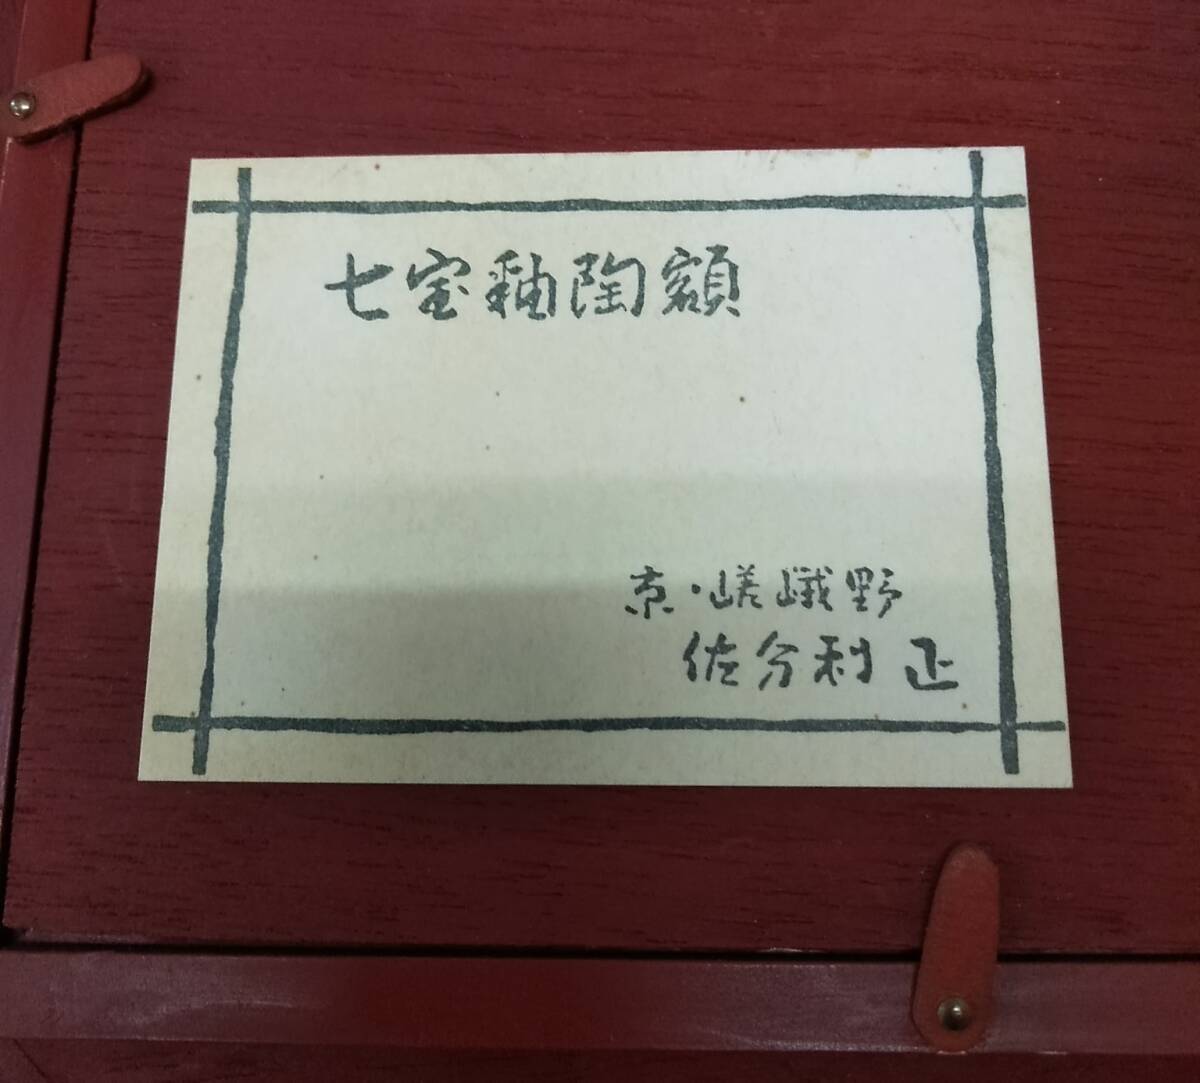 七宝釉陶額
京・嵯峨野
佐分利 正